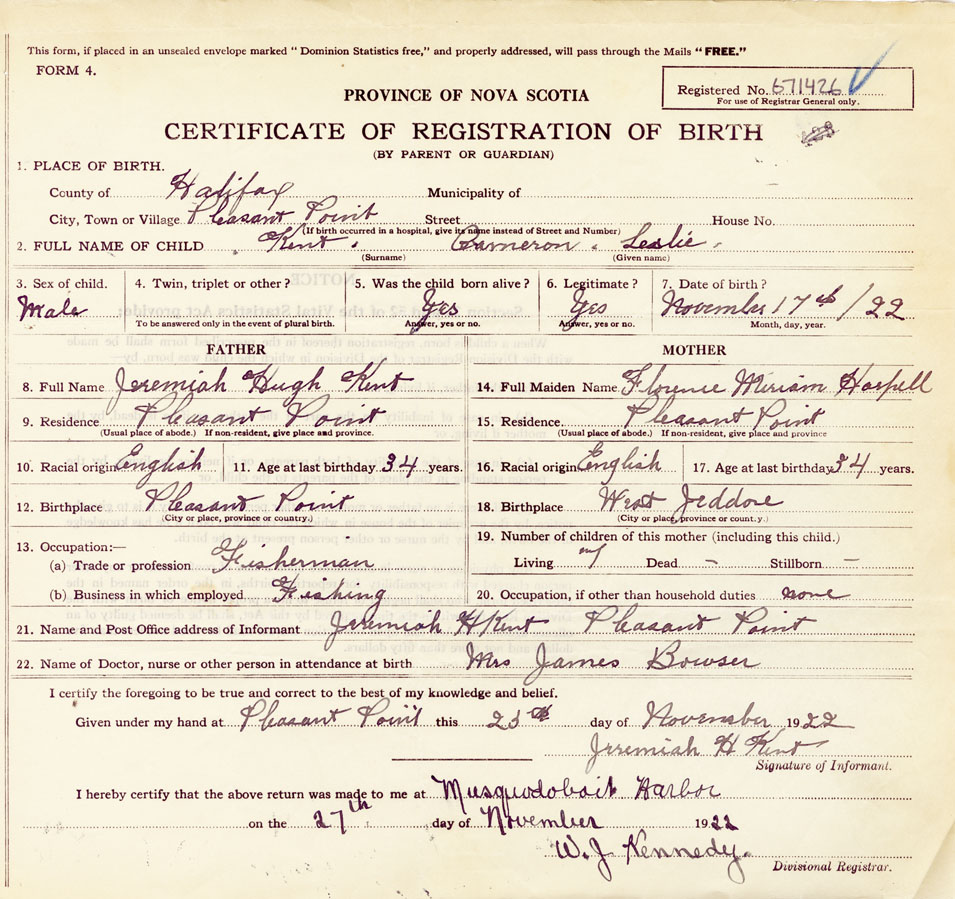 This form, if placed in an unsealed envelope marked "Dominion Statistics free," and properly addressed, will pass through the Mails "FREE."
FORM 4.
Registered No. 671426
For use of Registrar General only.
PROVINCE OF NOVA SCOTIA
CERTIFICATE OF REGISTRATION OF BIRTH
(BY PARENT OR GUARDIAN)
1. PLACE OF BIRTH.
County of Halifax Municipality of
City, Town or Village Pleasant Point Street House No.
(If birth occurred in a hospital, give its name instead of Street and Number)
2. FULL NAME OF CHILD Kent. Cameron. Leslie.
(Surname) (Given name)
3. Sex of child. 4. Twin, triplet or other? 5. Was the child born alive? 6. Legitimate? 7. Date of birth?
Male Yes Yes November 17th/22
To be answered only in the event of plural birth. Answer, yes or no. Answer, yes or no. Month, day, year.
FATHER MOTHER
8. Full Name Jeremiah Hugh Kent 14. Full Maiden Name Florence Miriam Harpell
9. Residence Pleasant Point 15. Residence. Pleasant Point
(Usual place of abode.) If non-resident, give place and province. (Usual place of abode.) If non-resident, give place and province
10. Racial origin English 11. Age at last birthday 34 years. 16. Racial origin English 17. Age at last birthday 34 years.
12. Birthplace Pleasant Point 18. Birthplace West Jeddore
(City or place, province or country.) (City or place, province or country.)
13. Occupation:— 19. Number of children of this mother (including this child.)
(a) Trade or profession Fisherman Living Dead – Stillborn –
(b) Business in which employed Fishing 20. Occupation, if other than household duties none
21. Name and Post Office address of Informant Jeremiah H Kent Pleasant Point
22. Name of Doctor, nurse or other person in attendance at birth Mrs James Bowser
I certify the foregoing to be true and correct to the best of my knowledge and belief.
Given under my hand at Pleasant Point this 25th day of November 1922
Jeremiah H Kent
Signature of Informant.
I hereby certify that the above return was made to me at Musquodoboit Harbor
on the 27th day of November 1922
W. J. Kennedy.
Divisional Registrar.